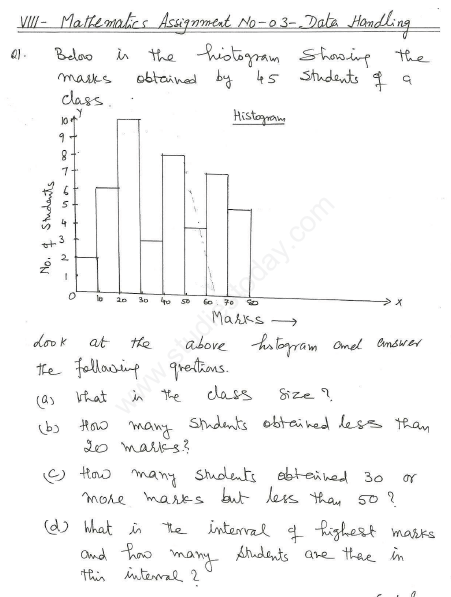 VIII- Mathematics Assignment No-03- Data Handling
Q1. Below is the histogram showing the
marks obtained by 45 students of a
class.
Histogram
y
10
9
8
7
6
5
4
3
2
1
0
No. of Students
10 20 30 40 50 60 70 80
x
Marks →
Look at the above histogram and answer
the following questions.
(a) What is the class size?
(b) How many students obtained less than
20 marks?
(c) How many students obtained 30 or
more marks but less than 50?
(d) What is the interval of highest marks
and how many students are there in
this interval?
www.studiestoday.com